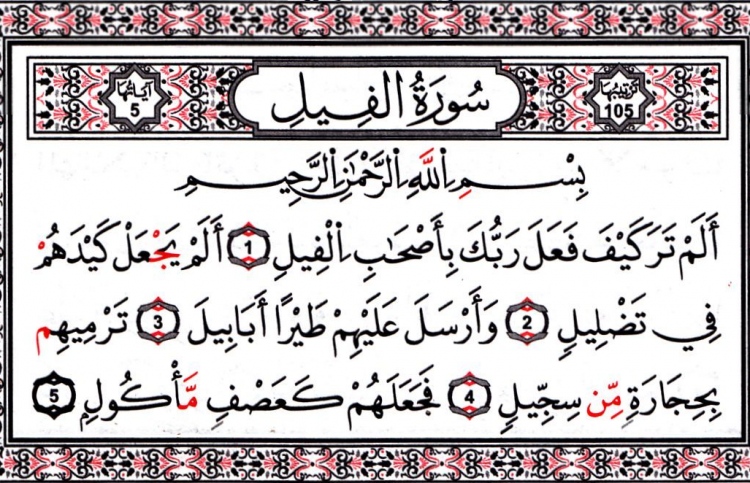 ترتيبها 105 سُورَةُ الفِيلِ آياتها 5
بِسْمِ اِللَّهِ اِلرَّحْمَٰنِ اِلرَّحِيمِ
أَلَمْ تَرَ كَيْفَ فَعَلَ رَبُّكَ بِأَصْحَٰبِ اِلْفِيلِ 1 أَلَمْ يَجْعَلْ كَيْدَهُمْ
فِي تَضْلِيلٍ 2 وَأَرْسَلَ عَلَيْهِمْ طَيْرًا أَبَابِيلَ 3 تَرْمِيهِم
بِحِجَارَةٍ مِّن سِجِّيلٍ 4 فَجَعَلَهُمْ كَعَصْفٍ مَّأْكُولٍ 5